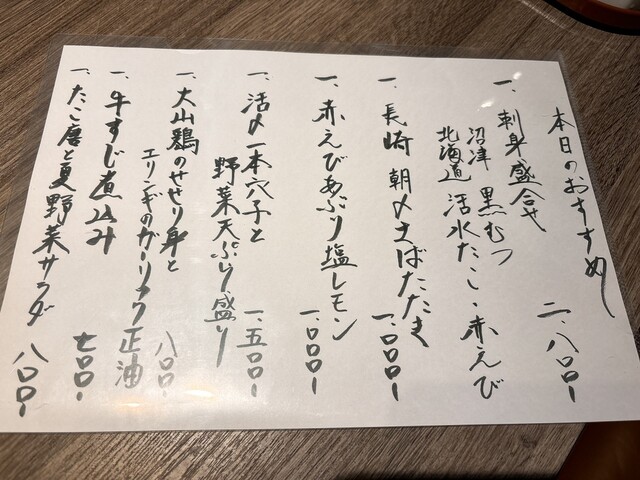 本日のおすすめ
一、刺身盛合せ 二、八〇〇ー
沼津 黒むつ
北海道 活水たこ・赤えび
一、長崎 朝〆さばたたき 一、〇〇〇ー
一、赤えびあぶり塩レモン 一、〇〇〇ー
一、活〆一本穴子と
野菜天ぷら盛り 一、五〇〇ー
一、大山鶏のせせり身と
エリンギのガーリック正油 八〇〇ー
一、牛すじ煮込み 七〇〇ー
一、たこ唐と夏野菜サラダ 八〇〇ー